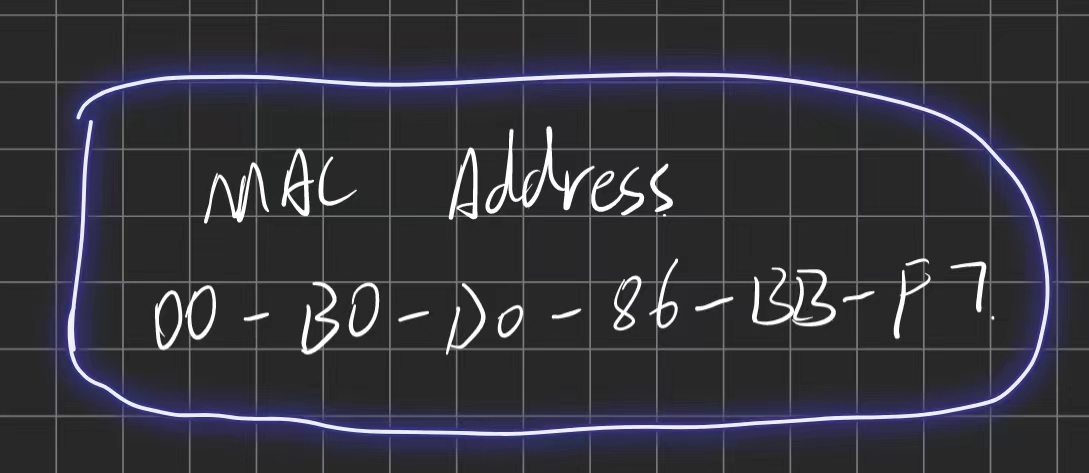 MAC Address
00-B0-D0-86-BB-F7.